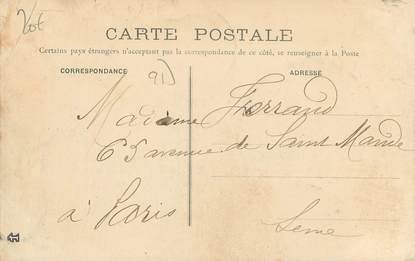 20€
CARTE POSTALE
Certains pays étrangers n'acceptant pas la correspondance de ce côté, se renseigner à la Poste
CORRESPONDANCE
ADRESSE
91)
Madame Ferrand
65 avenue de Saint Mandé
à Paris
Seine